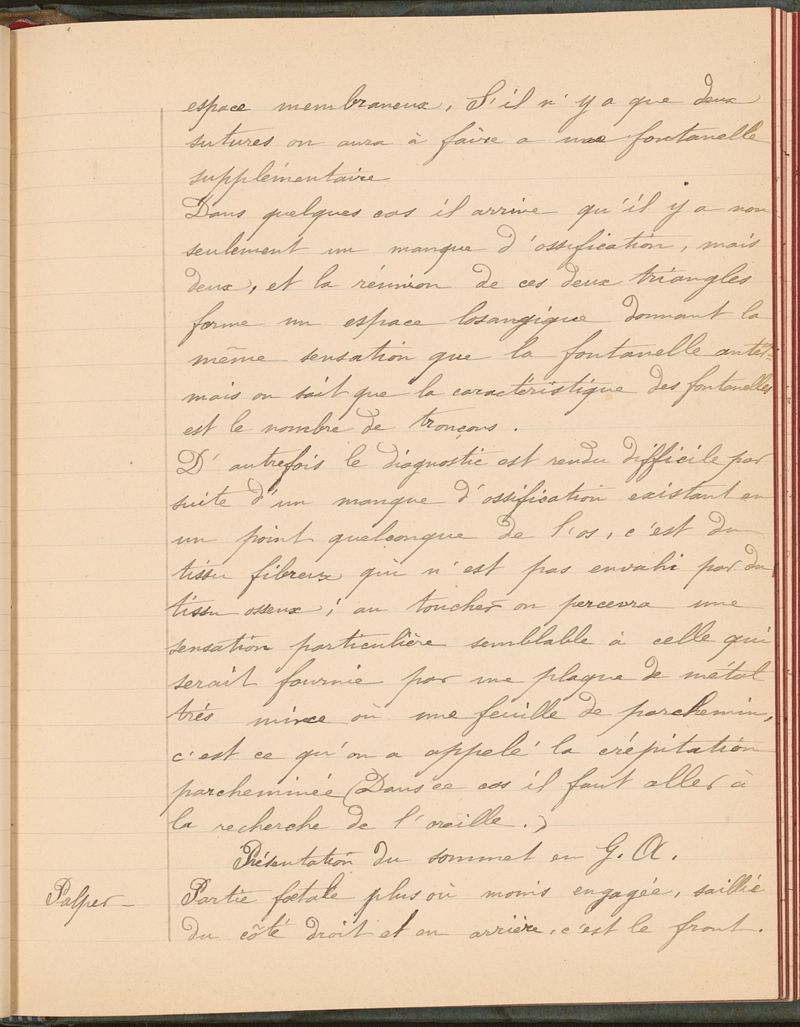 espace membraneux, S'il n'y a que deux
sutures on aura à faire a une fontanelle
supplémentaire
Dans quelques cas il arrive qu'il y a non
seulement un manque d'ossification, mais
deux, et la réunion de ces deux triangles
forme un espace losangique donnant la
même sensation que la fontanelle anter-
mais on sait que la caractéristique des fontanelles
est le nombre de tronçons.
D'autrefois le diagnostic est rendu difficile par
suite d'un manque d'ossification existant en
un point quelconque de l'os, c'est du
tissu fibreux qui n'est pas envahi par du
tissu osseux; au toucher on percevra une
sensation particulière semblable à celle qui
serait fournie par une plaque de métal
trés mince où une feuille de parchemin,
c'est ce qu'on a appelé la crépitation
parcheminée (Dans ce cas il faut aller à
la recherche de l'oreille.)
Présentation du sommet en G. A.
Palper - Partie fœtale plus où moins engagée, saillie
du côté droit et en arrière, c'est le front.